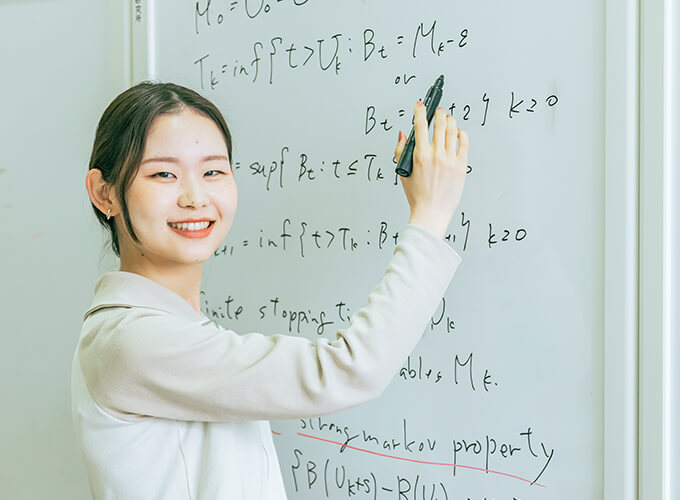 M₀ = U₀ = 0
T_k = inf{t > U_k : B_t = M_k - ε
or
B_t = + 2} k ≥ 0
= sup{B_t : t ≤ T_k
= inf{t > T_k : B_t k ≥ 0
finite stopping U_k
M_k.
strong markov property
{B(U_k+s) - B(U
研究所